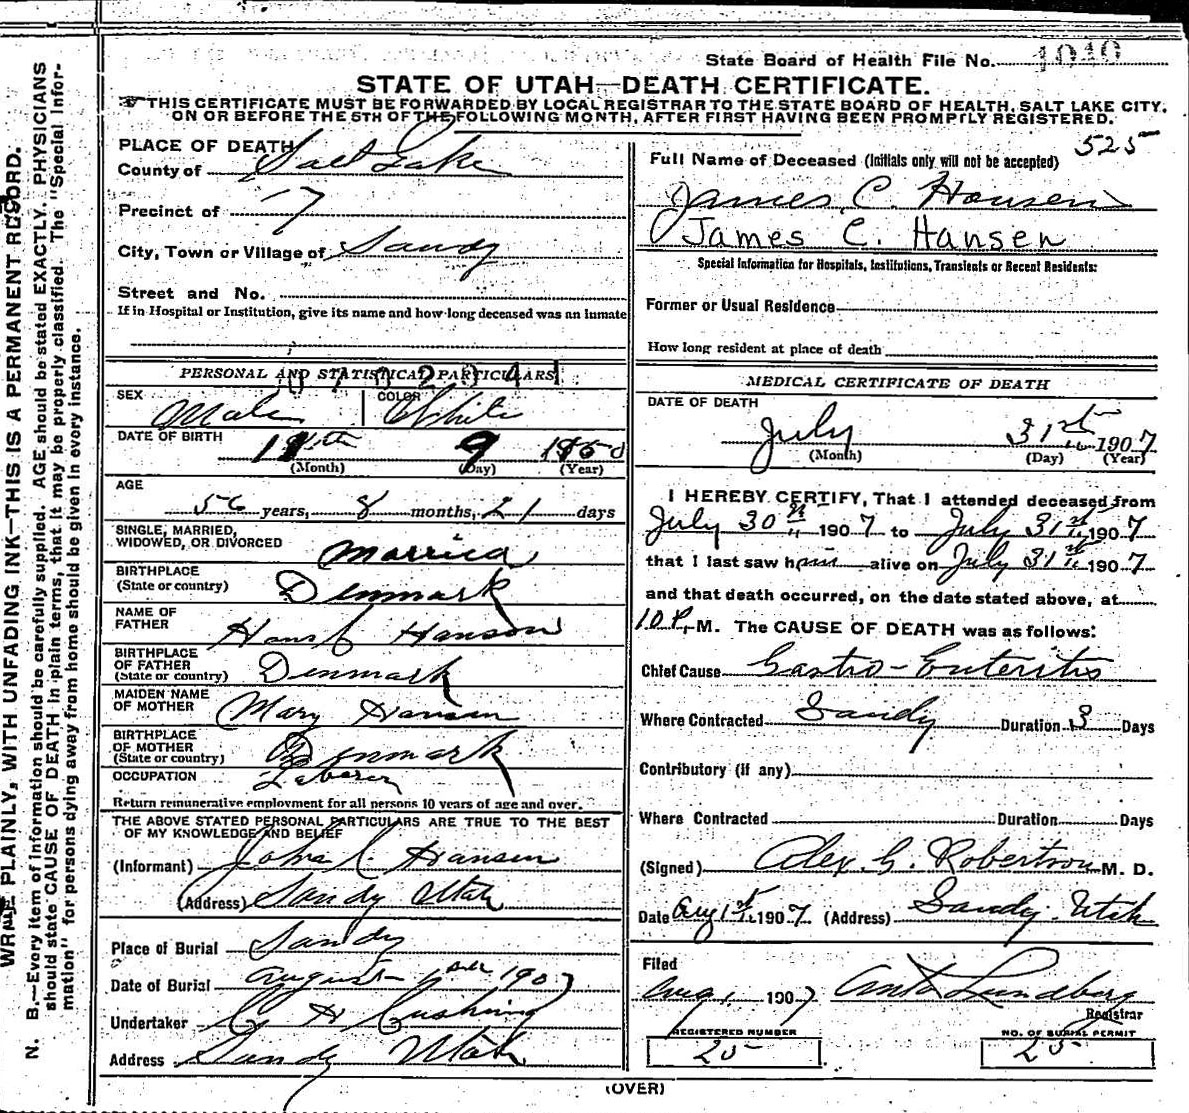 State Board of Health File No. 1040
STATE OF UTAH—DEATH CERTIFICATE.
THIS CERTIFICATE MUST BE FORWARDED BY LOCAL REGISTRAR TO THE STATE BOARD OF HEALTH, SALT LAKE CITY,
ON OR BEFORE THE 5TH OF THE FOLLOWING MONTH, AFTER FIRST HAVING BEEN PROMPTLY REGISTERED.
525
PLACE OF DEATH
County of Salt Lake
Precinct of 7
City, Town or Village of Sandy
Street and No.
If in Hospital or Institution, give its name and how long deceased was an inmate
PERSONAL AND STATISTICAL PARTICULARS
SEX Male
COLOR White
DATE OF BIRTH 9
(Month) (Day) (Year)
AGE
56 years, 8 months, 21 days
SINGLE, MARRIED,
WIDOWED, OR DIVORCED Married
BIRTHPLACE
(State or country) Denmark
NAME OF
FATHER Hans C Hanson
BIRTHPLACE
OF FATHER
(State or country) Denmark
MAIDEN NAME
OF MOTHER Mary Hansen
BIRTHPLACE
OF MOTHER
(State or country) Denmark
OCCUPATION Laborer
Return remunerative employment for all persons 10 years of age and over.
THE ABOVE STATED PERSONAL PARTICULARS ARE TRUE TO THE BEST
OF MY KNOWLEDGE AND BELIEF
(Informant) Hansen
(Address) Sandy Utah
Place of Burial Sandy
Date of Burial August 1907
Undertaker C H Cushing
Address Sandy Utah
Full Name of Deceased (Initials only will not be accepted)
James C. Hansen
James C. Hansen
Special Information for Hospitals, Institutions, Transients or Recent Residents:
Former or Usual Residence
How long resident at place of death
MEDICAL CERTIFICATE OF DEATH
DATE OF DEATH
July 31st 1907
(Month) (Day) (Year)
I HEREBY CERTIFY, That I attended deceased from
July 30th 1907 to July 31st 1907
that I last saw him alive on July 31st 1907
and that death occurred, on the date stated above, at
10 P. M. The CAUSE OF DEATH was as follows:
Chief Cause Gastro-Enteritis
Where Contracted Sandy Duration 3 Days
Contributory (if any)
Where Contracted Duration Days
(Signed) Alex. G. Robertson M. D.
Date Aug 1st 1907 (Address) Sandy. Utah
Filed
Aug 1 1907 Lundberg
Registrar
REGISTERED NUMBER
25
NO. OF BURIAL PERMIT
25
(OVER)
WRITE PLAINLY, WITH UNFADING INK—THIS IS A PERMANENT RECORD.
N. B.—Every item of information should be carefully supplied. AGE should be stated EXACTLY. PHYSICIANS
should state CAUSE OF DEATH in plain terms, that it may be properly classified. The "Special Infor-
mation" for persons dying away from home should be given in every instance.